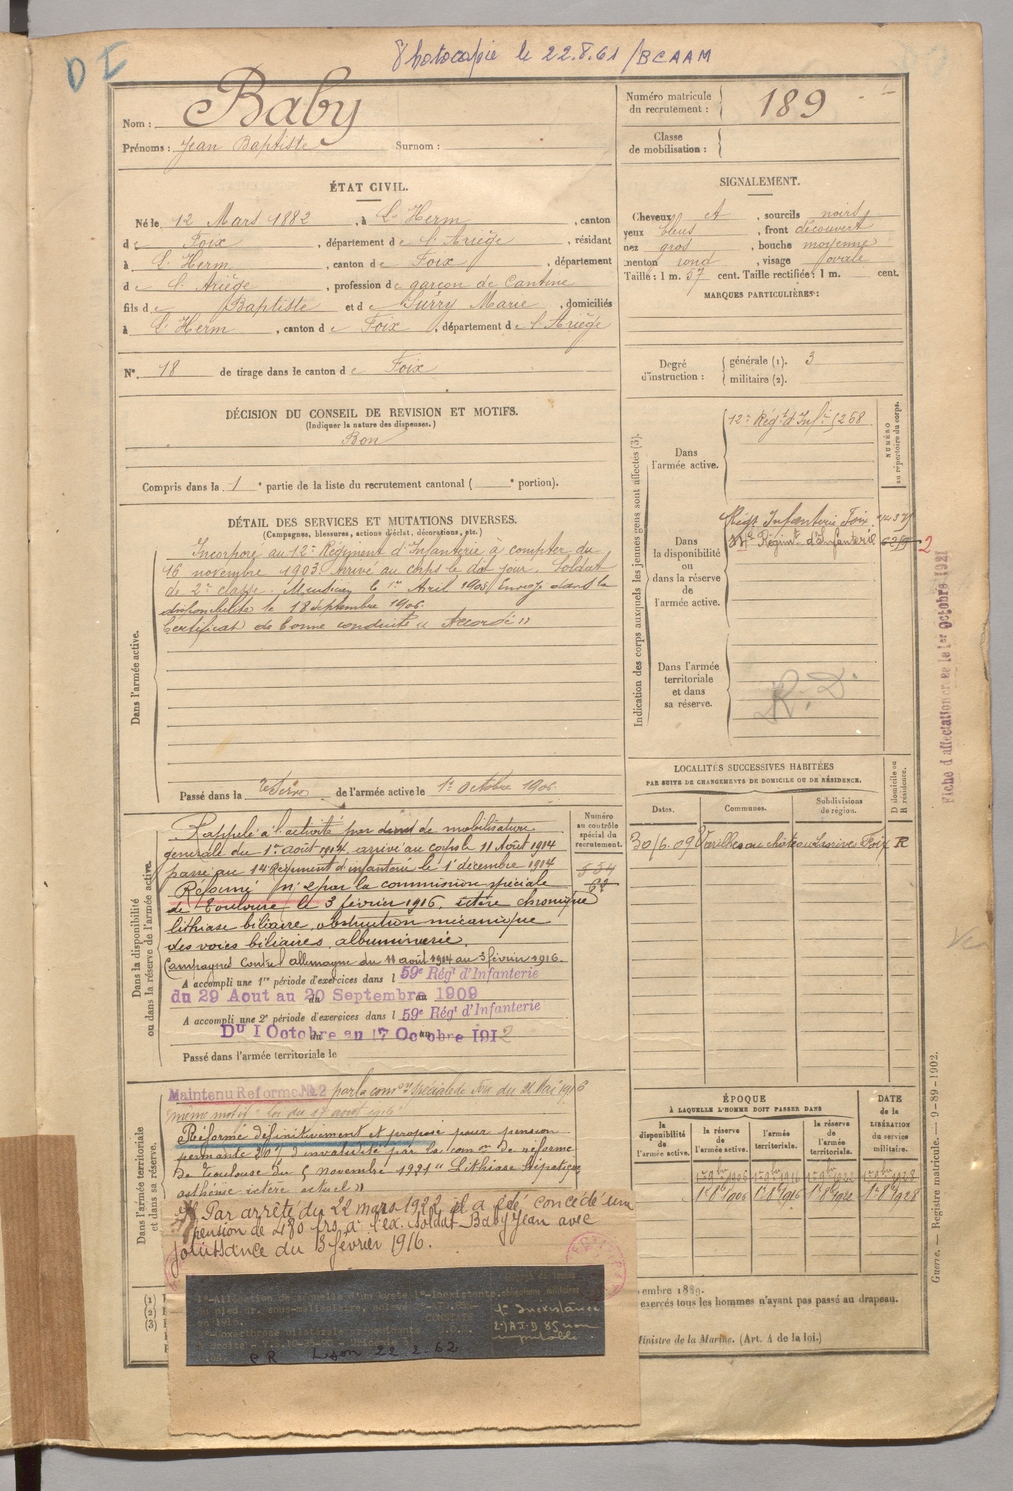 D I
Photocopie le 22.8.61 / BCAAM
Nom : Baby
Prénoms : Jean Baptiste Surnom :
Numéro matricule du recrutement : 189
Classe de mobilisation :
ÉTAT CIVIL.
Né le 12 Mars 1882, à L'Herm, canton
de Foix, département de l'Ariège, résidant
à L'Herm, canton de Foix, département
de l'Ariège, profession de garçon de Cantine
fils de Baptiste et de Surry Marie, domiciliés
à L'Herm, canton de Foix, département de l'Ariège
N° 18 de tirage dans le canton de Foix
SIGNALEMENT.
Cheveux et, sourcils noirs
yeux bleus, front découvert
nez gros, bouche moyenne
menton rond, visage ovale
Taille : 1 m. 57 cent. Taille rectifiée : 1 m. cent.
MARQUES PARTICULIÈRES :
Degré d'instruction : générale (1). 3
militaire (2).
DÉCISION DU CONSEIL DE REVISION ET MOTIFS.
(Indiquer la nature des dispenses.)
Bon
Compris dans la 1e partie de la liste du recrutement cantonal ( e portion).
DÉTAIL DES SERVICES ET MUTATIONS DIVERSES.
(Campagnes, blessures, actions d'éclat, décorations, etc.)
Dans l'armée active.
Incorporé au 12e Régiment d'Infanterie à compter du
16 novembre 1903. arrivé au corps le dit jour. Soldat
de 2e classe. Musicien le 1er Avril 1905. Envoyé dans la
disponibilité le 18 septembre 1906.
Certificat de bonne conduite « Accordé »
Passé dans la réserve de l'armée active le 1er Octobre 1906.
Dans la disponibilité ou dans la réserve de l'armée active.
Rappelé à l'activité par décret de mobilisation
générale du 1er août 1914 arrivé au corps le 11 Août 1914
passé au 14 Régiment d'infanterie le 1er décembre 1914
Réformé n° 2 par la commission spéciale
de Toulouse le 3 février 1916. ictère chronique
lithiase biliaire, obstruction mécanique
des voies biliaires, albuminerie.
Campagnes Contre l'allemagne du 11 août 1914 au 3 février 1916.
A accompli une 1re période d'exercices dans l 59e Régt d'Infanterie
du 29 Aout au 20 Septembre 1909
A accompli une 2e période d'exercices dans l 59e Régt d'Infanterie
Du 1 Octobre au 17 Octobre 1912
Passé dans l'armée territoriale le
Numéro au contrôle spécial du recrutement.
Dans l'armée territoriale et dans sa réserve.
Maintenu Reforme No 2 par la comon spéciale de Foix du 26 Mai 1916
"même motif" loi du 17 août 1915
Réformé définitivement et proposé pour pension
permante 20% d'invalidité par la comon de réforme
de Toulouse du 5 novembre 1921 "Lithiase hépatique
asthénie ictère actuel"
Par arrêté du 22 mars 1922 il a été concédé une
pension de 480 frs à l'ex. soldat Baby Jean avec
jouissance du 3 février 1916.
CR Lyon 22.2.62
Indication des corps auxquels les jeunes gens sont affectés (3).
NUMÉRO au répertoire du corps.
Dans l'armée active.
12e Régt d'Infie 5268
Dans la disponibilité ou dans la réserve de l'armée active.
Régt Infanterie Foix
Régimt d'Infanterie
2
Dans l'armée territoriale et dans sa réserve.
R. D.
Fiche d'affectation créée le 1er Octobre 1921
LOCALITÉS SUCCESSIVES HABITÉES
PAR SUITE DE CHANGEMENTS DE DOMICILE OU DE RÉSIDENCE.
Dates. Communes. Subdivisions de région. D domicile ou R résidence.
30/6.09 Varilhes au château Foix R
ÉPOQUE
À LAQUELLE L'HOMME DOIT PASSER DANS
la disponibilité de l'armée active. la réserve de l'armée active. l'armée territoriale. la réserve de l'armée territoriale.
DATE de la LIBÉRATION du service militaire.
1er 8bre 1906 1er 8bre 1916 1er 8bre 1922 1er 8bre 1928
(1)
(2)
(3)
embre 1889.
exercés tous les hommes n'ayant pas passé au drapeau.
Ministre de la Marine. (Art. 4 de la loi.)
Guerre. — Registre matricule. — 9-89-1902.